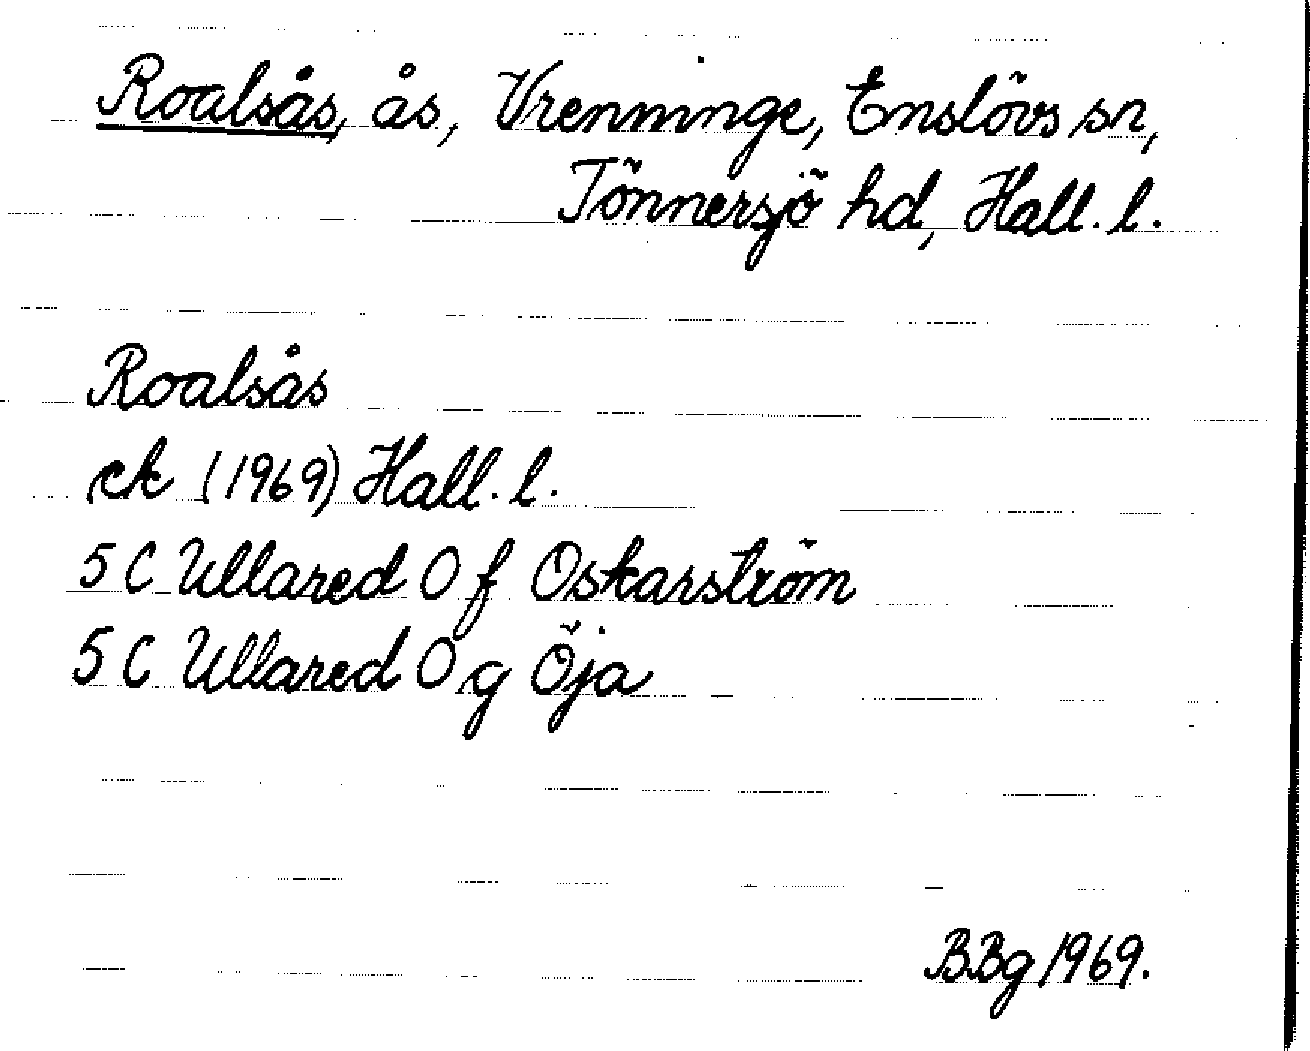 Roalsås, ås, Vrenninge, Enslövs sn,
Tönnersjö hd, Hall. l.
Roalsås
ek (1969) Hall. l.
5 C Ullared O f Oskarström
5 C Ullared O g Öja
BBg 1969.